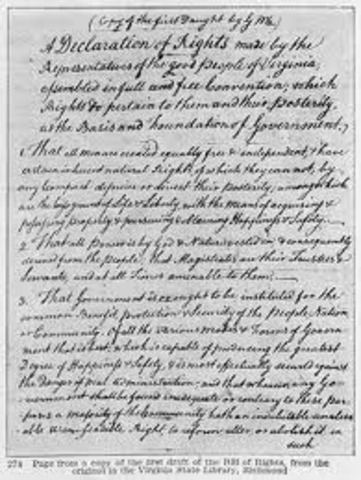 (Copy of the first Daught by G M)
A Declaration of Rights made by the
Representatives of the good people of Virginia,
assembled in full and free Convention; which
Rights do pertain to them and their posterity,
as the Basis and Foundation of Government.
1. That all men are created equally free & independent, & have
certain inherent natural Rights, of which they cannot, by
any Compact deprive or divest their posterity; among which
are the Enjoyment of Life & Liberty, with the Means of acquiring &
possessing property, & pursueing & obtaining Happiness & Safety.
2. That all Power is by God & Nature vested in & consequently
derived from the People; that Magistrates are their Trustees &
Servants, and at all Times amenable to them.
3. That Government is or ought to be instituted for the
common Benefit, Protection & Security of the People, Nation
or Community. Of all the various Modes & Forms of Govern
ment that is best, which is capable of producing the greatest
Degree of Happiness & Safety, & is most effectually secured against
the Danger of Mal-administration; and that whenever any Go-
vernment shall be found inadequate or contrary to these Pur
poses a majority of the Community hath an indubitable unalien
able & indefeasible Right to reform alter or abolish it in
such
274 Page from a copy of the first draft of the Bill of Rights, from the
original in the Virginia State Library, Richmond